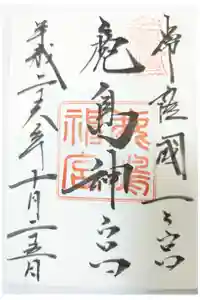 常陸國一之宮
鹿島神宮
平成二十八年十月二五日
鹿島
神宮